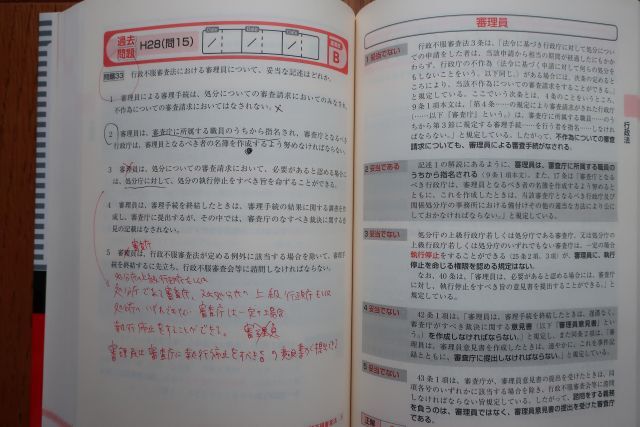 過去問題 H28(問15)
B
問題33 行政不服審査法における審理員について、妥当な記述はどれか。
1 審理員による審理手続は、処分についての審査請求においてのみなされ、
不作為についての審査請求においてはなされない。
2 審理員は、審査庁に所属する職員のうちから指名され、審査庁となるべき
行政庁は、審理員となるべき者の名簿を作成するよう努めなければならない。
3 審理員は、処分についての審査請求において、必要があると認める場合に
は、処分庁に対して、処分の執行停止をすべき旨を命ずることができる。
4 審理員は、審理手続を終結したときは、審理手続の結果に関する調書を作
成し、審査庁に提出するが、その中では、審査庁のなすべき裁決に関する意
見の記載はなされない。
審査庁
5 審理員は、行政不服審査法が定める例外に該当する場合を除いて、審理手
続を終結するに先立ち、行政不服審査会等に諮問しなければならない。
処分庁の上級行政庁又は
処分庁である審査庁
執行停止をすることができる。
審理員は審査庁に執行停止をすべき旨の意見書
審理員
1 妥当でない
行政不服審査法3条は、「法令に基づき行政庁に対して処分につい
ての申請をした者は、当該申請から相当の期間が経過したにもかか
わらず、行政庁の不作為(法令に基づく申請に対して何らの処分を
もしないことをいう。以下同じ。)がある場合には、次条の定めると
ころにより、当該不作為についての審査請求をすることができる。」
と規定している。ここでいう次条とは、4条のことをいうところ、
9条1項本文は、「第4条……の規定により審査請求がされた行政庁
(……以下「審査庁」という。)は、審査庁に所属する職員……のう
ちから第3節に規定する審理手続……を行う者を指名……しなけれ
ばならない。」と規定している。したがって、不作為についての審査
請求についても、審理員による審理手続がなされる。
2 妥当である
記述1の解説にあるように、審理員は、審査庁に所属する職員の
うちから指名される(9条1項本文)。また、17条は「審査庁となる
べき行政庁は、審理員となるべき者の名簿を作成するよう努めると
ともに、これを作成したときは、当該審査庁となるべき行政庁及び
関係処分庁の事務所における備付けその他の適当な方法により公に
しておかなければならない。」と規定している。
3 妥当でない
処分庁の上級行政庁若しくは処分庁である審査庁、又は処分庁の
上級行政庁若しくは処分庁のいずれでもない審査庁は、一定の場合
執行停止をすることができる(25条2項、3項)が、審理員に、執行
停止を命じる権限を認める規定はない。
なお、40条は、「審理員は、必要があると認める場合には、審査庁に
対し、執行停止をすべき旨の意見書を提出することができる。」と
規定している。
4 妥当でない
42条1項は、「審理員は、審理手続を終結したときは、遅滞なく、
審査庁がすべき裁決に関する意見書(以下「審理員意見書」とい
う。)を作成しなければならない。」と規定し、また同条2項は、「審
理員は、審理員意見書を作成したときは、速やかに、これを事件記
録とともに、審査庁に提出しなければならない。」と規定している。
5 妥当でない
43条1項は、審査庁が、審理員意見書の提出を受けたときは、同
項各号のいずれかに該当する場合を除き、行政不服審査会等に諮問
しなければならない旨規定している。したがって、諮問をする義務
を負うのは、審理員ではなく、審理員意見書の提出を受けた審査庁
である。
正解
行政法